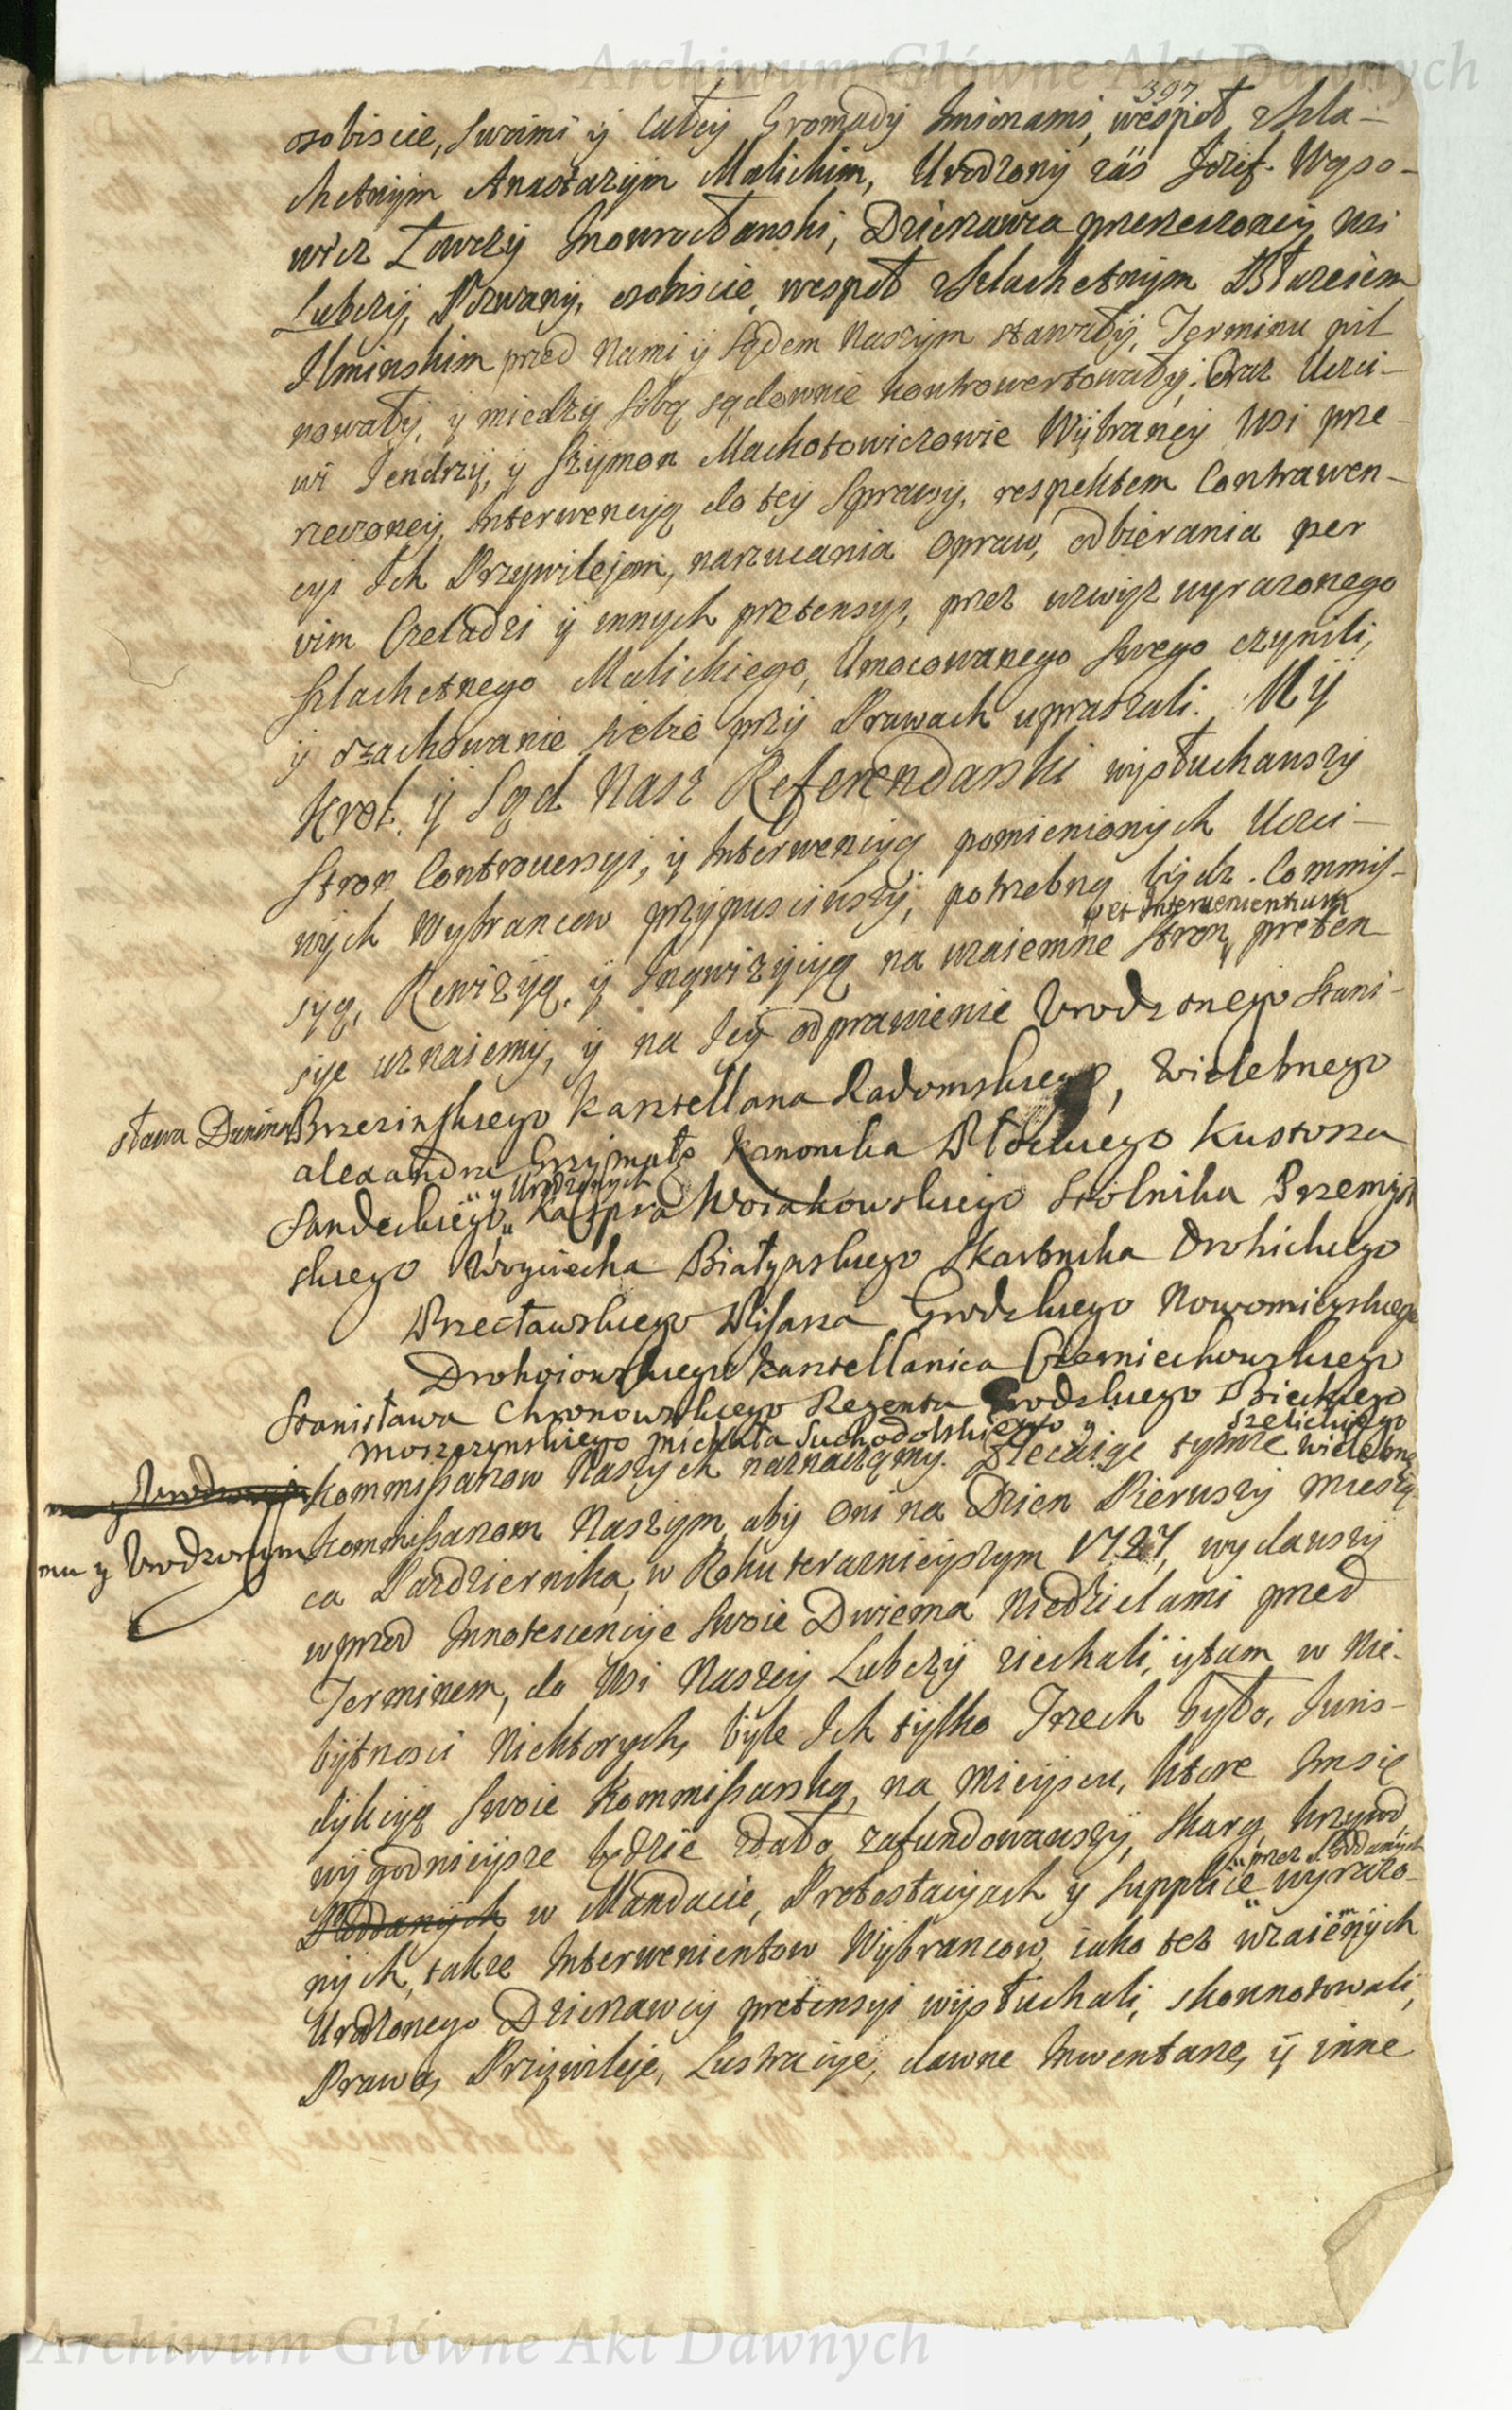 Archiwum Główne Akt Dawnych
397
osobiscie, Swemi y Całey Gromady Imionami, wespoł zSzla-
chetnym Anastazym Malickim, Urodzony zaś Jozef Wąso-
wicz Łowczy Inowrocławski, Dzierzawca przerzeczoney Wsi
Lubczy, Pozwany, osobiscie, wespoł zSzlachetnym Błazeiem
Ilminskim przed Nami y Sądem Naszym stawały, Terminu pil
nowały, y miedzy sobą sądownie kontrowertowały; Oraz Uczci-
wi Jendrzy, y Szymon Machotowiczowie Wybrancy Wsi prze-
rzeczoney, Interwencyą do tey Sprawy, respektem Contrawen-
cyi Ich Przywilejom, narzucania Opraw, odbierania per
vim Czeladzi y innych pretensyi, przez wzwysz wyrazonego
Szlachetnego Malickiego, Umocowanego Swego czynili,
y ozachowanie siebie przy Prawach upraszali. My
Krol, y Sąd Nasz Referendarski wysłuchawszy
Stron Controwersyi, y Interwencyą pomienionych Uczci-
wych Wybrancow przypusciwszy, potrzebną bydz Commis-
syą, Rewizyą, y Inqwizycyą na wzaiemne Stron " et Intervenientium " preten
sye uznaiemy, y na Jey odprawienie Urodzonego Stani-
sława Dunina Brzezinskiego Kasztellana Radomskiego, Wielebnego
Alexandra Grzymałę Kanonika Płockiego Kustosza
Sandeckiego, " y Urodzonych " Kaspra Woiakowskiego Stolnika Przemysl
skiego Woyciecha Białynskiego Skarbnika Drohickiego
Brzecławskiego Pisarza Grodzkiego Nowomieyskiego
Drohoiowskiego Kasztellanica Czerniechowskiego
Stanisława Chronowskiego Regenta Grodzkiego Bieckiego
Moszczynskiego Michała Suchodolskiego y Szelickiego
Kommissarzow Naszych naznaczamy. Zlecaiąc tymze Wielebne
mu y Urodzonym Kommissarzom Naszym, aby Oni na Dzien Pierwszy Miesią-
ca Pazdziernika, w Roku teraznieyszym 1727, wydawszy
wprzod Innotescencye Swoie Dwiema Niedzielami przed
Terminem, do Wsi Naszey Lubczy ziechali, ytam w Nie-
bytnosci Niektorych, byle Ich tylko Trzech było, Juris-
dykcyą Swoie Kommissarską, na Mieyscu, ktore Im się
wygodnieysze będzie zdało, zafundowawszy, Skarg, krzywd
Poddanych w Mandacie, Protestacyach y Supplice " przez Poddanych " wyrazo-
nych, takze Interwenientow Wybrancow, iako tez wzaiemnych
Urodzonego Dzierzawcy pretensyi wysłuchali, skonnotowali,
Prawa, Przywileje, Lustracye, dawne Inwentarze, y inne
Archiwum Główne Akt Dawnych